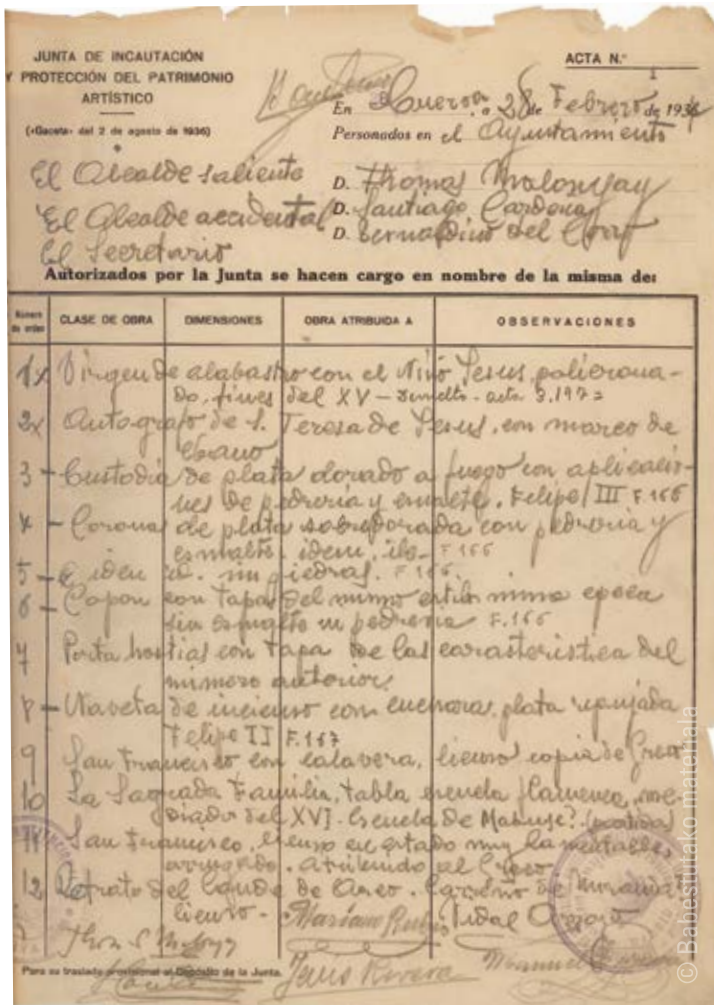 JUNTA DE INCAUTACIÓN
Y PROTECCIÓN DEL PATRIMONIO
ARTÍSTICO
(«Gaceta» del 2 de agosto de 1936)
ACTA N.º
1
En Cuerva a 28 de Febrero de 193
Personados en el Ayuntamiento
El Alcalde saliente
D. Thomas Malonyay
El Alcalde accidental
D. Santiago Cardona
El Secretario
D. Bernardino del
Autorizados por la Junta se hacen cargo en nombre de la misma de:
Número de orden
CLASE DE OBRA
DIMENSIONES
OBRA ATRIBUIDA A
OBSERVACIONES
1x Virgen de alabastro con el Niño Jesus, policroma-
do, fines del XV - acta 3.197
2x Autografo de S. Teresa de Jesus, con marco de
ebano
3 - Custodia de plata dorado a fuego con aplicacio-
nes de pedreria y esmalte. Felipe III F.166
4 - Corona de plata sobredorada con pedreria y
esmalte. idem, F.166
5 - idem id. sin piedras. F.166.
6 - Copon con tapa del mismo estilo misma epoca
sin esmalte ni pedreria F.166
7 Porta hostias con tapa de las caracteristica del
numero anterior.
8 - Naveta de incienso con cuchara, plata repujada
Felipe II F.167
9 San Francisco con calavera, lienzo copia de Greco
10 La Sagrada Familia, tabla escuela flamenca, me-
diados del XVI - Escuela de Mabuse?
11 San Francisco, lienzo en estado muy lamentable,
arrugado. atribuido al Greco
12 Retrato del Conde de Arco. Carreño de Miranda
lienzo.
Mariano Rubio Vidal Arroyo
Jesus Rivera Manuel
Para su traslado provisional al Depósito de la Junta.
© Babestutako materiala